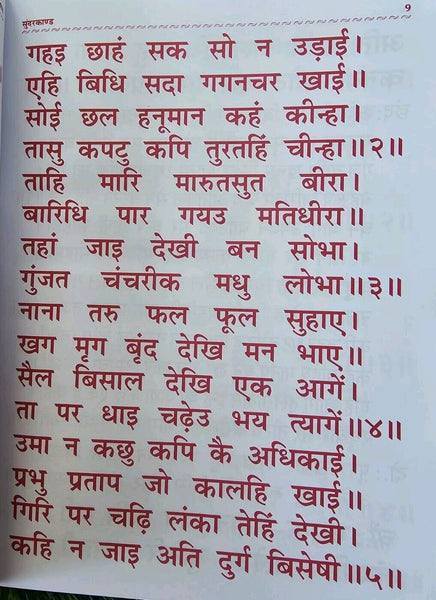 सुंदरकाण्ड 9
गहइ छाहं सक सो न उड़ाई।
एहि बिधि सदा गगनचर खाई॥
सोई छल हनूमान कहं कीन्हा।
तासु कपटु कपि तुरतहिं चीन्हा॥२॥
ताहि मारि मारुतसुत बीरा।
बारिधि पार गयउ मतिधीरा॥
तहां जाइ देखी बन सोभा।
गुंजत चंचरीक मधु लोभा॥३॥
नाना तरु फल फूल सुहाए।
खग मृग बृंद देखि मन भाए॥
सैल बिसाल देखि एक आगें।
ता पर धाइ चढ़ेउ भय त्यागें॥४॥
उमा न कछु कपि कै अधिकाई।
प्रभु प्रताप जो कालहि खाई॥
गिरि पर चढ़ि लंका तेहिं देखी।
कहि न जाइ अति दुर्ग बिसेषी॥५॥